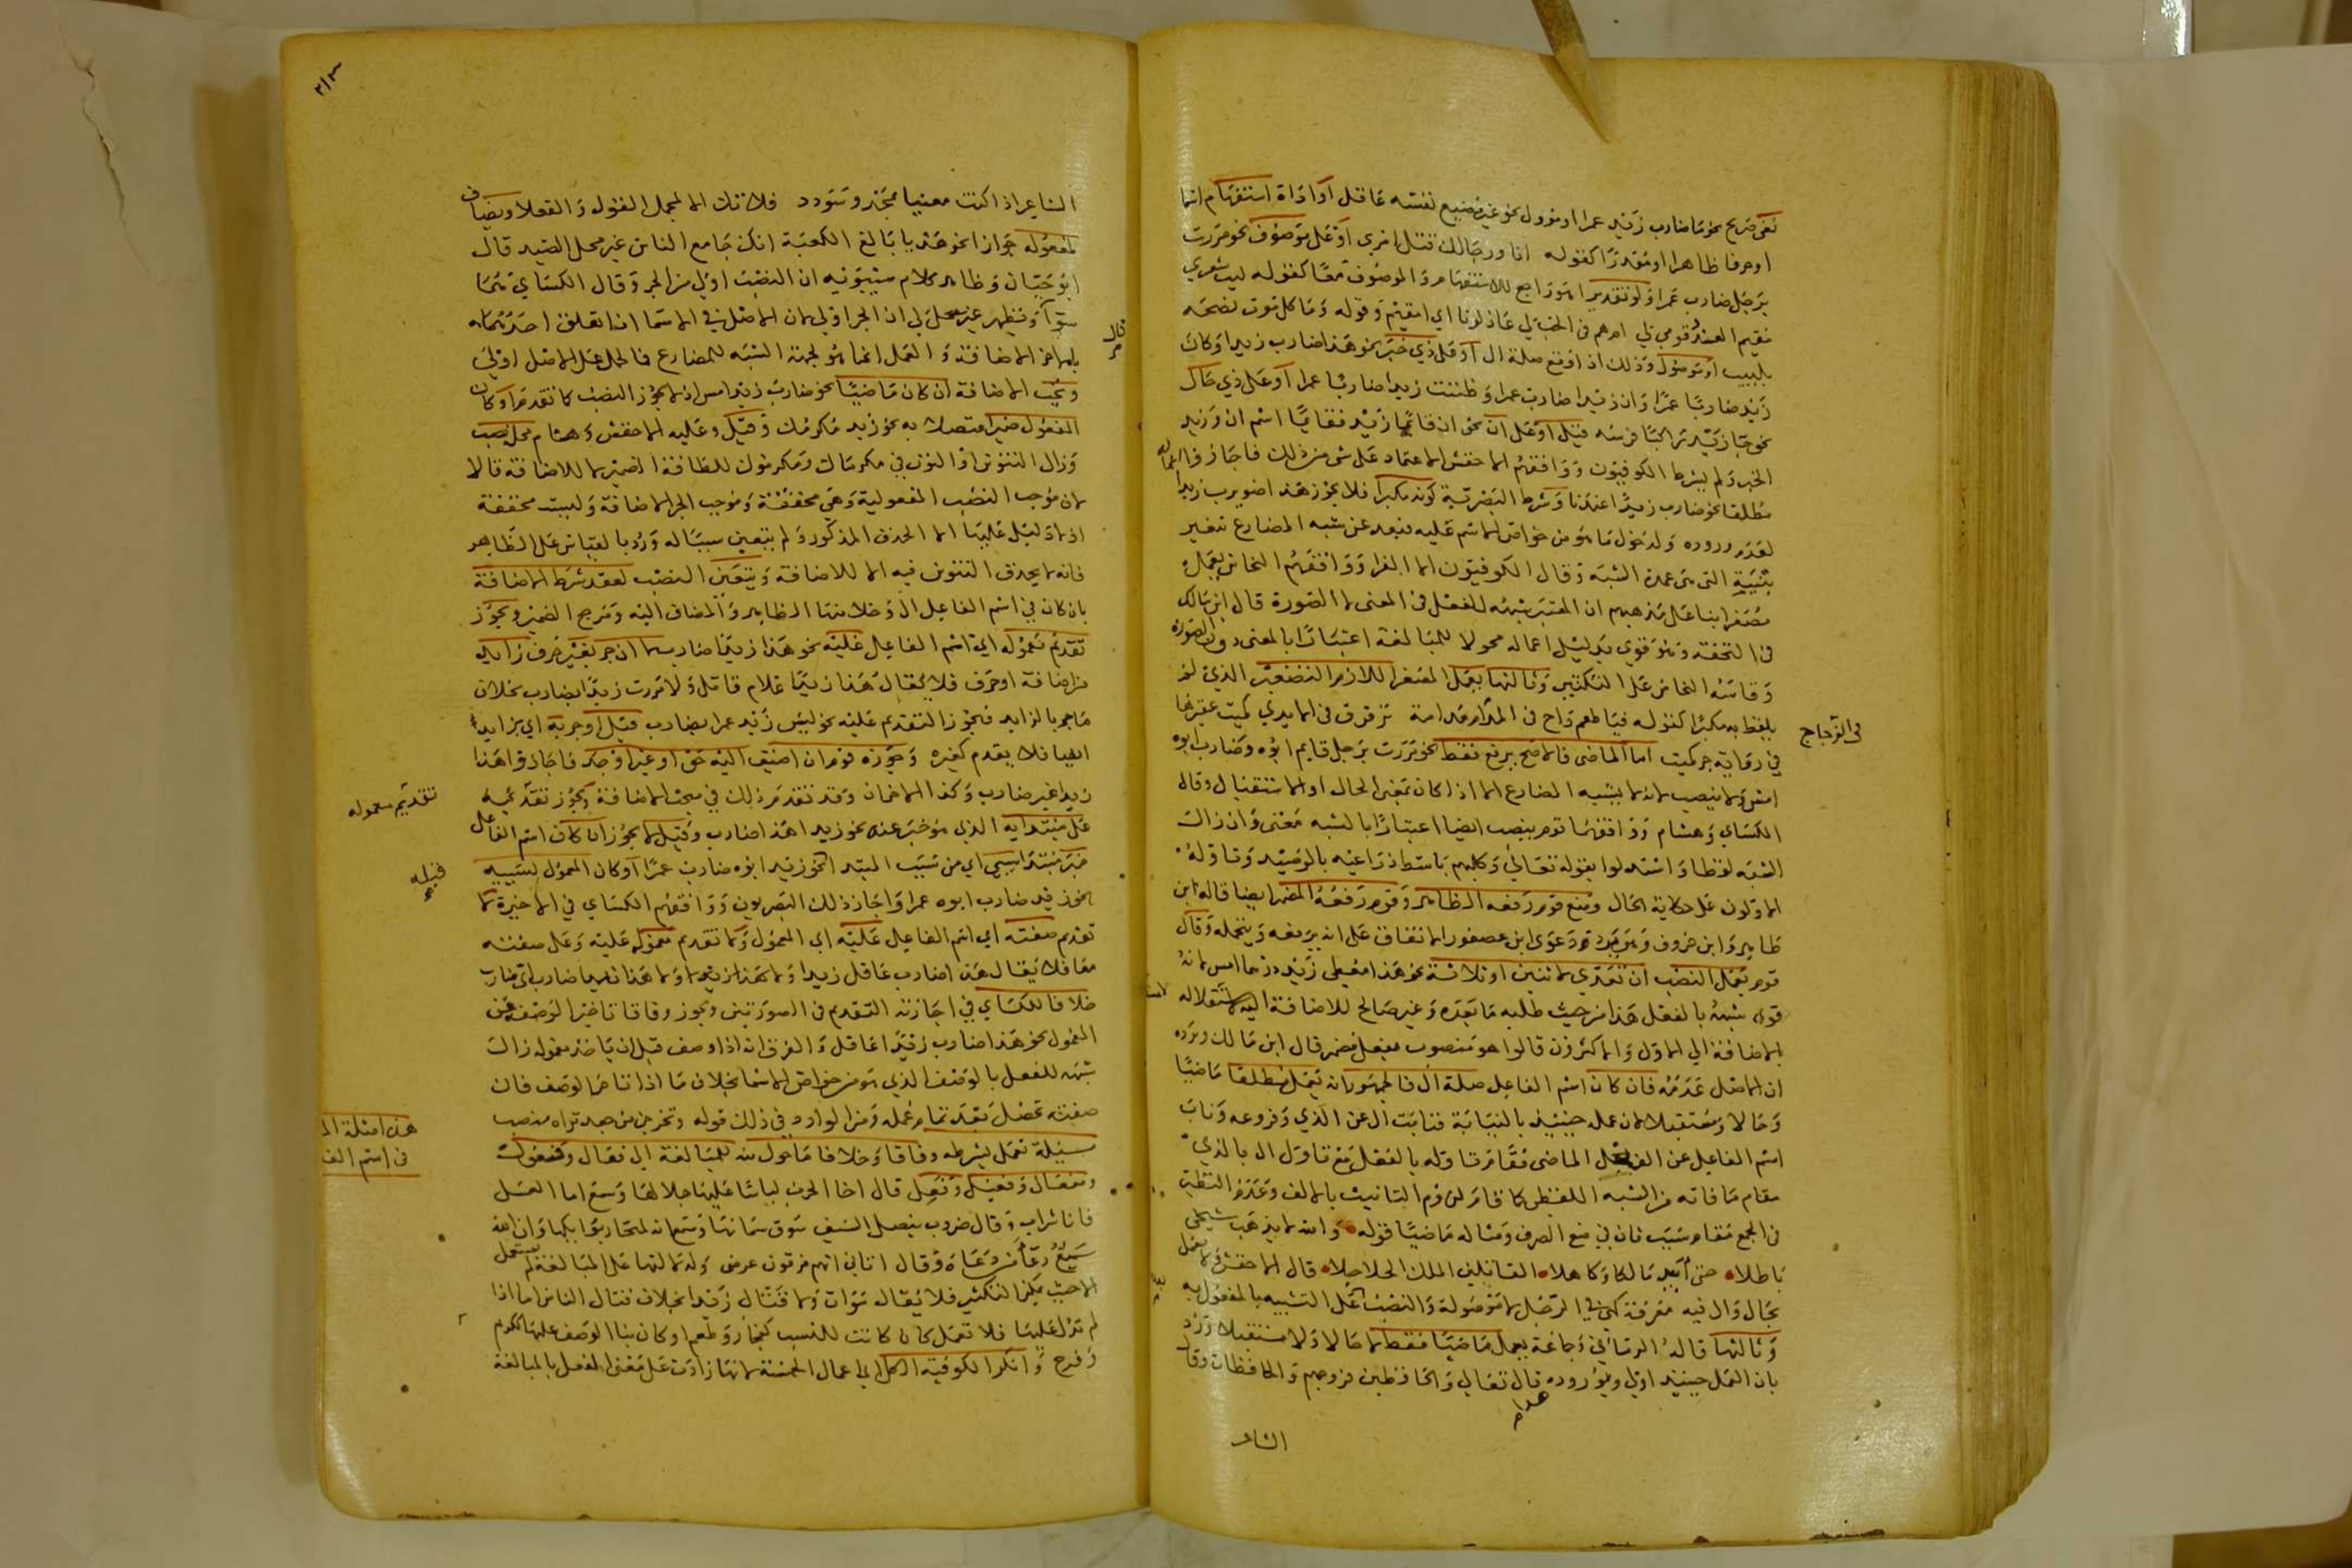 نفي صريح نحو ما ضارب زيد عمرا او مؤول نحو غير مضيع نفسه عاقل او اداة استفهام اسما
او حرفا ظاهرا او مقدرا كقوله اناو رجالك قتل امرئ او على موصوف نحو مررت
برجل ضارب عمرا ولو تقديرا هو راجع للاستفهام والموصوف معا كقوله ليت شعري
مقيم العذر قومي لي ام هم في الحب لي عاذلونا اي امقيم وقوله وما كل مؤت نصحه
بلبيب او موصول وذلك اذا وقع صلة ال او على ذي خبر نحو هذا ضارب زيدا وكان
زيد ضاربا عمرا وان زيدا ضارب عمرا وظننت زيدا ضاربا عمرا او على ذي حال
نحو جا زيد راكبا فرسه قيل او على ان نحو ان قائما زيد فقائما اسم ان وزيد
الخبر ولم يشرط الكوفيون ووافقهم الاخفش الاعتماد على شي من ذلك فاجازوا اعماله
مطلقا نحو ضارب زيدا عندنا وشرط البصرية كونه مكبرا فلا يجوز هذا ضويرب زيدا
لعدم وروده ولدخول ما هو من خواص الاسم عليه فبعد عن شبه المضارع بتغيير
بنيته التي هي عمدة الشبه وقال الكوفيون الا الفرا ووافقهم النحاس يعمل
مصغرا بنا على مذهبهم ان المعتبر شبهه للفعل في المعنى لا الصورة قال ابن مالك
في التحفة وهو قوي بدليل اعماله محولا للمبالغة اعتبارا بالمعنى دون الصورة
وقاسه النحاس على التكسير وثالثها يعمل المصغر اللازم التصغير الذي لم
يلفظ به مكبرا كقوله فما طعم راح في الزجاج مدامة ترقرق في الايدي كميت عصيرها
في رواية جر كميت اما الماضي فالاصح يرفع فقط نحو مررت برجل قايم ابوه وضارب ابوه
امس ولا ينصب لانه لا يشبه المضارع الا اذا كان بمعنى الحال او الاستقبال وقال
الكساي وهشام ووافقهما قوم ينصب ايضا اعتبارا بالشبه معنى وان زال
الشبه لفظا واستدلوا بقوله تعالى وكلبهم باسط ذراعيه بالوصيد وتاوله
الاولون على حكاية الحال ومنع قوم رفعه الظاهر وقوم رفعه المضمر ايضا قاله ابن
طاهر وابن خروف وهو يرد دعوى ابن عصفور الاتفاق على انه يرفعه ويتحمله وقال
قوم يعمل النصب ان تعدى لاثنين او ثلاثة نحو هذا معطي زيد درهما امس لانه
قوي شبهه بالفعل هذا من حيث طلبه ما بعده وغير صالح للاضافة اليه لاستقلاله
بالاضافة الى الاول والاكثرون قالوا هو منصوب بفعل مضمر قال ابن مالك ويرده
ان الاصل عدمه فان كان اسم الفاعل صلة ال فالجمهور انه يعمل مطلقا ماضيا
وحالا ومستقبلا لان عمله حينئذ بالنيابة فنابت ال عن الذي وفروعه وناب
اسم الفاعل عن الفعل الماضي فقام تاوله بالفعل مع تاول ال بالذي
مقام ما فاته من الشبه اللفظي كما قام لزوم التانيث بالالف وعدم النظير
في الجمع مقام سبب ثان في منع الصرف ومثاله ماضيا قوله والله لا يذهب شيخي
باطلا حتى ابيد مالكا وكاهلا القاتلين الملك الحلاحلا قال الاخفش ولا يعمل
بحال وال فيه معرفة كهي في الرجل لا موصولة والنصب على التشبيه بالمفعول به
وثالثها قاله الرماني وجماعة يعمل ماضيا فقط لا حالا ولا مستقبلا ورد
بان العمل حينئذ اولى وبوروده قال تعالى والحافظين فروجهم والحافظات وقال
الشاعر
في الزجاج
الشاعر اذا كنت معنيا بمجد وسودد فلا تك الا المجمل القول والفعلا ويضاف
لمفعوله جوازا نحو هديا بالغ الكعبة انك جامع الناس غير محلي الصيد قال
ابو حيان وظاهر كلام سيبويه ان النصب اولى من الجر وقال الكساي هما
سوآ ويظهر لي ان الجر اولى لان الاصل في الاسما اذا تعلق احدهما
بالاخر الاضافة والعمل انما هو لجهة الشبه للمضارع فالحمل على الاصل اولى
وتجب الاضافة ان كان ماضيا نحو ضارب زيد امس اذ لا يجوز النصب كما تقدم او كان
المفعول ضميرا متصلا به نحو زيد مكرمك وقيل وعليه الاخفش وهشام محله نصب
وزال التنوين او النون في مكرماك ومكرموك للطافة الضمير لا للاضافة قالا
لان موجب النصب المفعولية وهي محققة وموجب الجر الاضافة وليست محققة
اذ لا دليل عليها الا الحذف المذكور ولم يتعين سببا له ورد بالقياس على الظاهر
فانه لا يحذف التنوين فيه الا للاضافة ويتعين النصب لفقد شرط الاضافة
بان كان في اسم الفاعل ال وخلا منها الظاهر والمضاف اليه ومرجع الضمير ويجوز
تقديم معموله اي اسم الفاعل عليه نحو هذا زيدا ضارب لا ان جر بغير حرف زايد
من اضافة او حرف فلا يقال هذا زيدا غلام قاتل ولا مررت زيدا بضارب بخلاف
ما جر بالزايد فيجوز التقديم عليه نحو ليس زيد عمرا بضارب قيل او جر به اي بزايد
ايضا فلا يقدم كغيره وجوزه قوم ان اضيف اليه حق او غير او جد فاجازوا هذا
زيدا غير ضارب وكذا الاخران وقد تقدم ذلك في مبحث الاضافة ويجوز تقديمه
على مبتدايه الذي هو خبر عنه نحو زيدا هذا ضارب وقيل لا يجوز ان كان اسم الفاعل
خبر مبتدا سببي اي من سبب المبتدا نحو زيد ابوه ضارب عمرا او كان المعمول لسببيه
نحو زيد ضارب ابوه عمرا واجاز ذلك البصريون ووافقهم الكساي في الاخيرة لا
تقديم صفته اي اسم الفاعل عليه اي المعمول ولا تقديم معموله عليه وعلى صفته
معا فلا يقال هذا ضارب عاقل زيدا ولا هذا زيدا ضارب اي ضارب
خلافا للكساي في اجازته التقديم في الصورتين ويجوز وفاقا تاخير الوصف عن
المفعول نحو هذا ضارب زيدا عاقل والفرق انه اذا وصف قبل ان ياخذ معموله زال
شبهه للفعل بالوصف الذي هو من خواص الاسما بخلاف ما اذا تاخر الوصف فان
صفته تحصل بعد تمام عمله ومن الوارد في ذلك قوله وتخرجن من جعد ثراه منصب
مسئلة تعمل بشرطه وفاقا وخلافا ما حول منه للمبالغة الى فعال وفعول
ومفعال وفعيل وفعل قال اخا الحرب لباسا عليها جلالها وسمع اما العسل
فانا شراب وقال ضروب بنصل السيف سوق سمانها وسمع انه لمنحار بوائكها وان الله
سميع دعا من دعاه وقال اتاني انهم مزقون عرضي ولدلالتها على المبالغة لم تستعمل
الا حيث يمكن التكثير فلا يقال موات ولا قتال زيدا بخلاف قتال الناس اما اذا
لم تدل عليها فلا تعمل كان كانت للنسب كنجار وطعم او كان بنا الوصف عليها ككريم
وفرح وانكر الكوفية الكل اي اعمال الخمسة لانها زادت على معنى الفعل بالمبالغة
قال
تقديم معموله
قبله
هذه امثلة الم
في اسم الفا